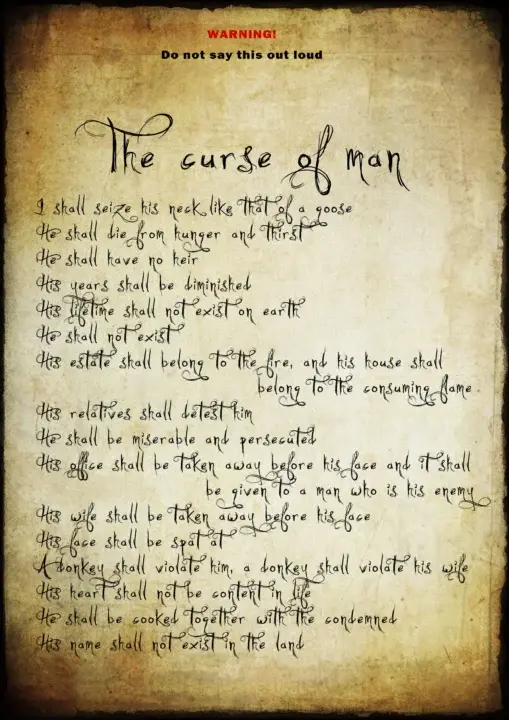 WARNING!
Do not say this out loud
The curse of man
I shall seize his neck like that of a goose
He shall die from hunger and thirst
He shall have no heir
His years shall be diminished
His lifetime shall not exist on earth
He shall not exist
His estate shall belong to the fire, and his house shall
belong to the consuming flame
His relatives shall detest him
He shall be miserable and persecuted
His office shall be taken away before his face and it shall
be given to a man who is his enemy
His wife shall be taken away before his face
His face shall be spat at
A donkey shall violate him, a donkey shall violate his wife
His heart shall not be content in life
He shall be cooked together with the condemned
His name shall not exist in the land